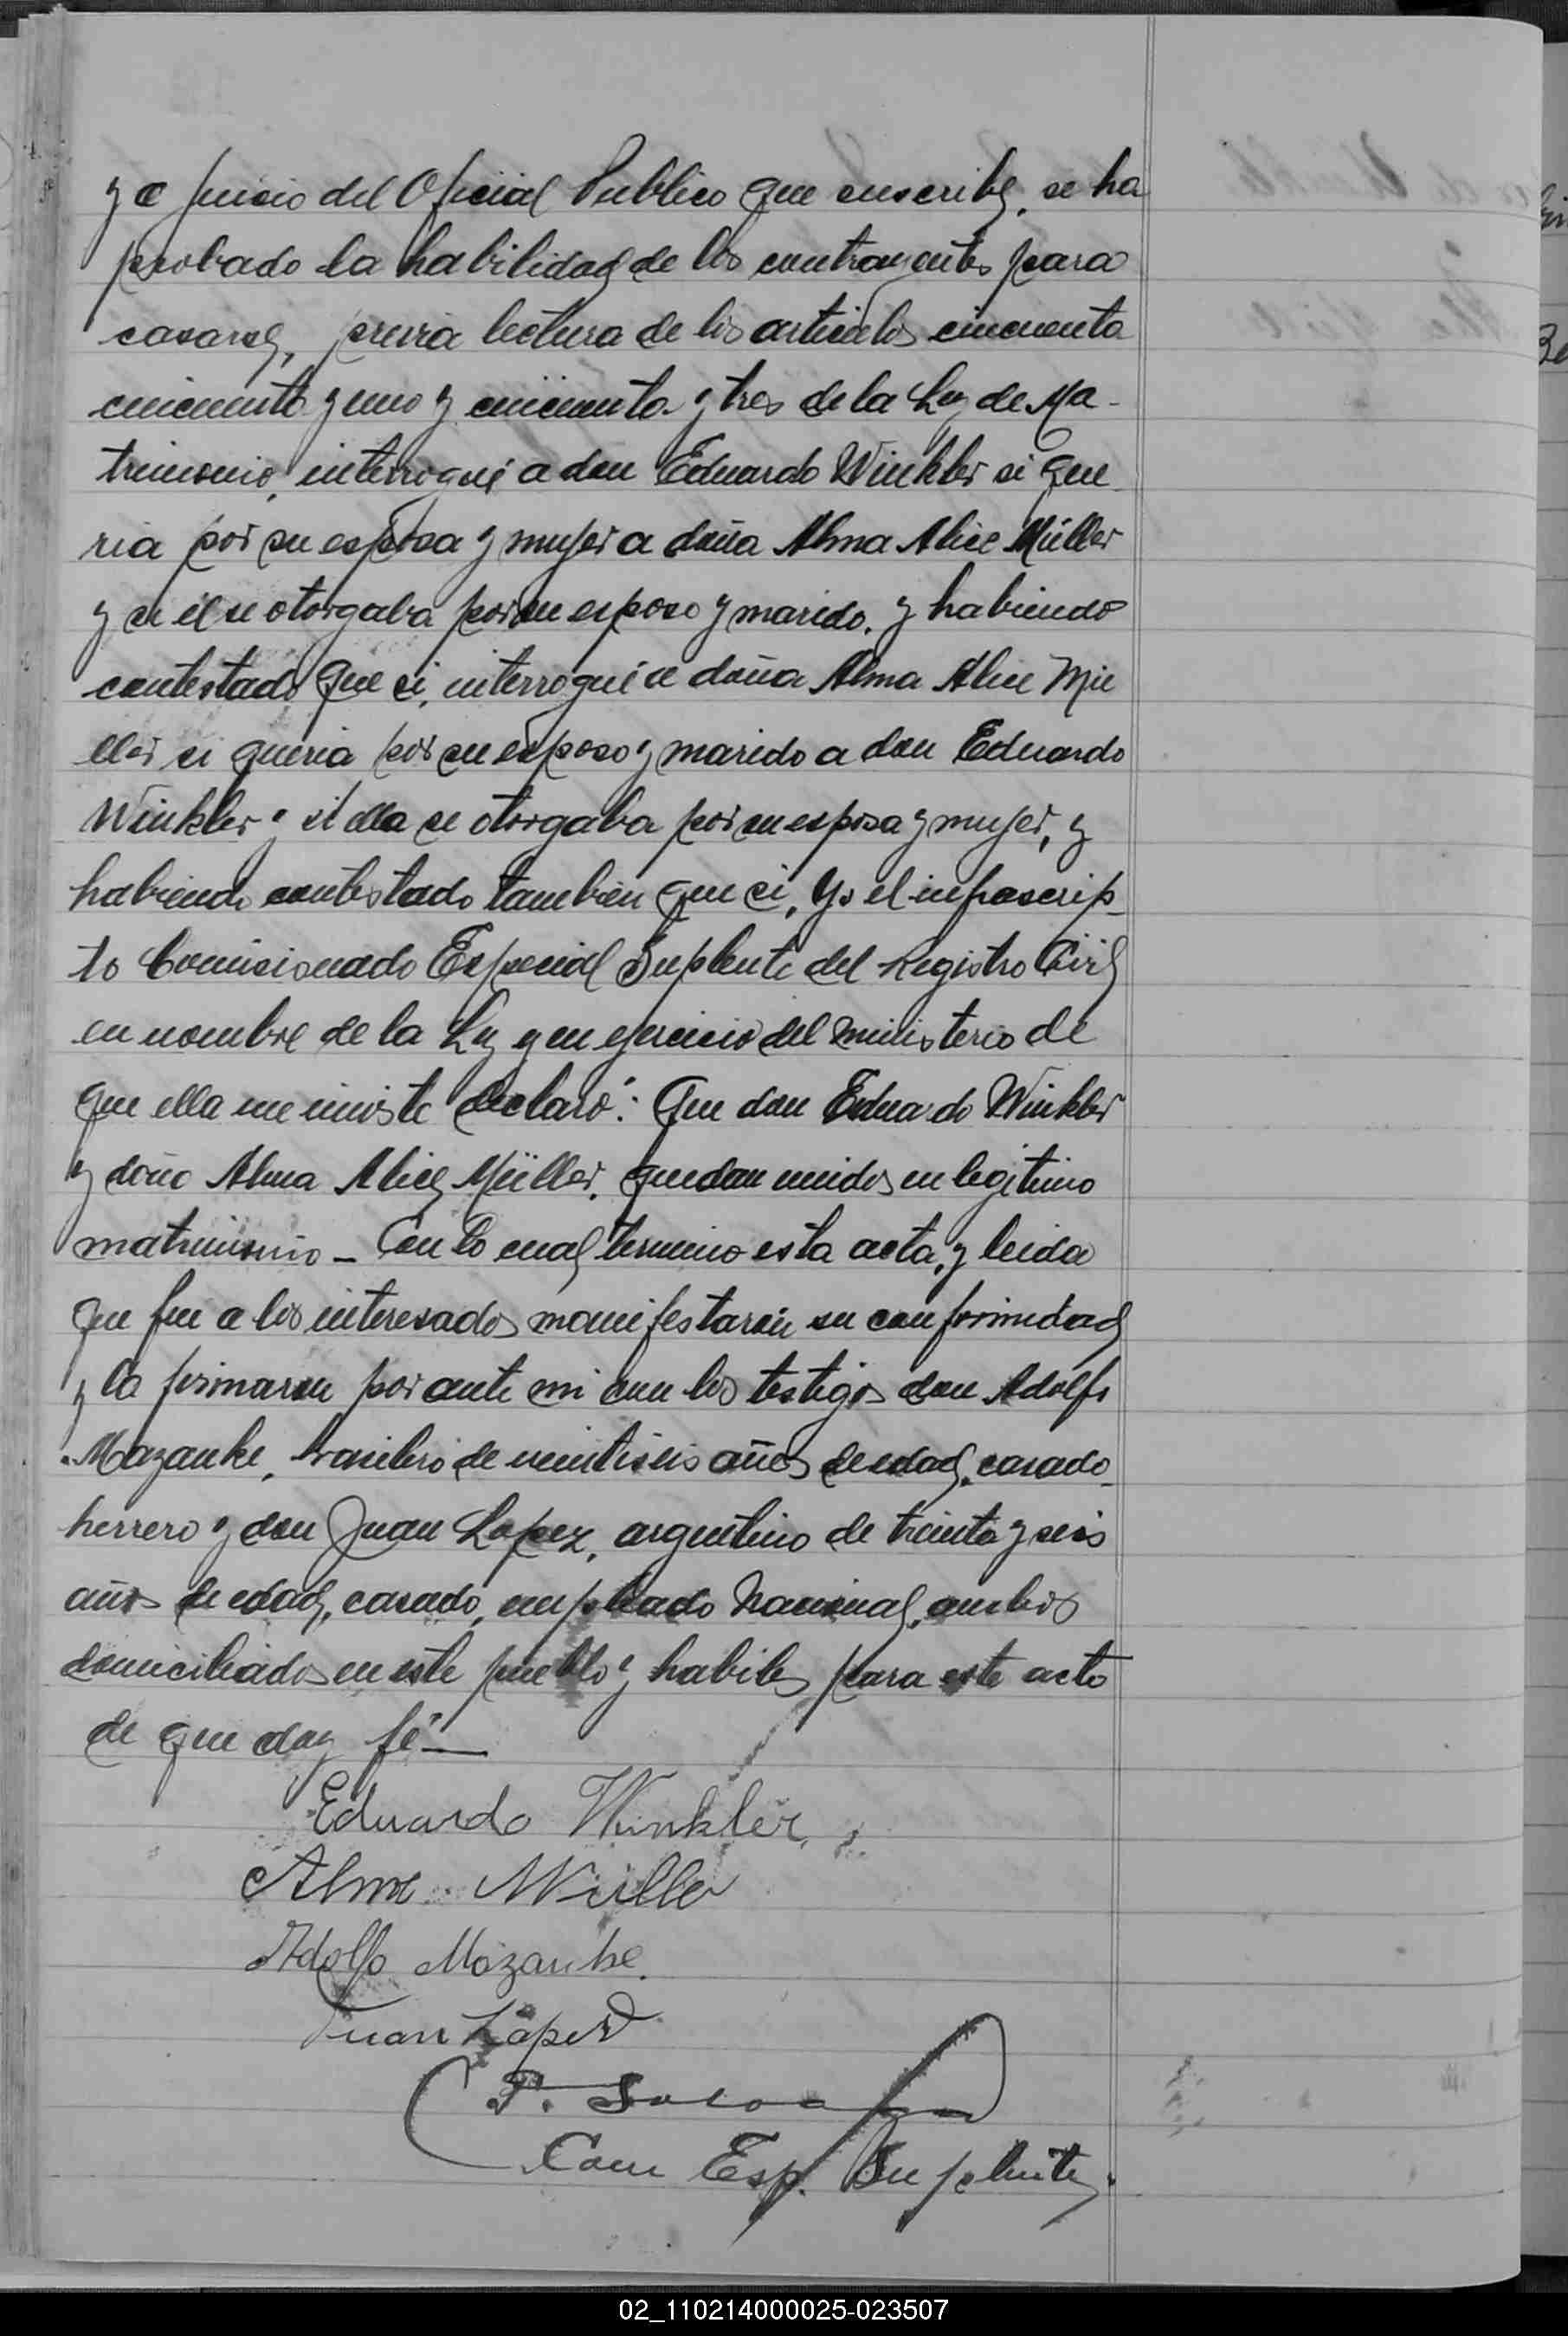 y a juicio del Oficial Publico que suscribe, se ha
probado la habilidad de los contrayentes para
casarse, previa lectura de los articulos cincuenta
cincuenta y uno y cincuenta y tres de la Ley de Ma-
trimonio, interrogué a don Eduardo Winkler si que-
ria por su esposa y mujer a doña Alma Alice Müller
y si él se otorgaba por su esposo y marido, y habiendo
contestado que si, interrogué a doña Alma Alice Mü
ller si queria por su esposo y marido a don Eduardo
Winkler y si ella se otorgaba por su esposa y mujer, y
habiendo contestado tambien que si, Yo el infrascrip-
to Comisionado Especial Suplente del Registro Civil
en nombre de la Ley y en ejercicio del ministerio de
que ella me inviste declaro: Que don Eduardo Winkler
y doña Alma Alice Müller, quedan unidos en legitimo
matrimonio - Con lo cual termino esta acta, y leida
que fue a los interesados manifestaron su conformidad
y la firmaron por ante mi con los testigos don Adolfo
Mazanke, brasilero de veintiseis años de edad, casado-
herrero y don Juan Lopez, argentino de treinta y seis
años de edad, casado, empleado Nacional, ambos
domiciliados en este pueblo y habiles para este acto
de que doy fé—
Eduardo Winkler
Alma Müller
Adolfo Mazanke.
Juan López
Com Esp. Suplente.
02_110214000025-023507